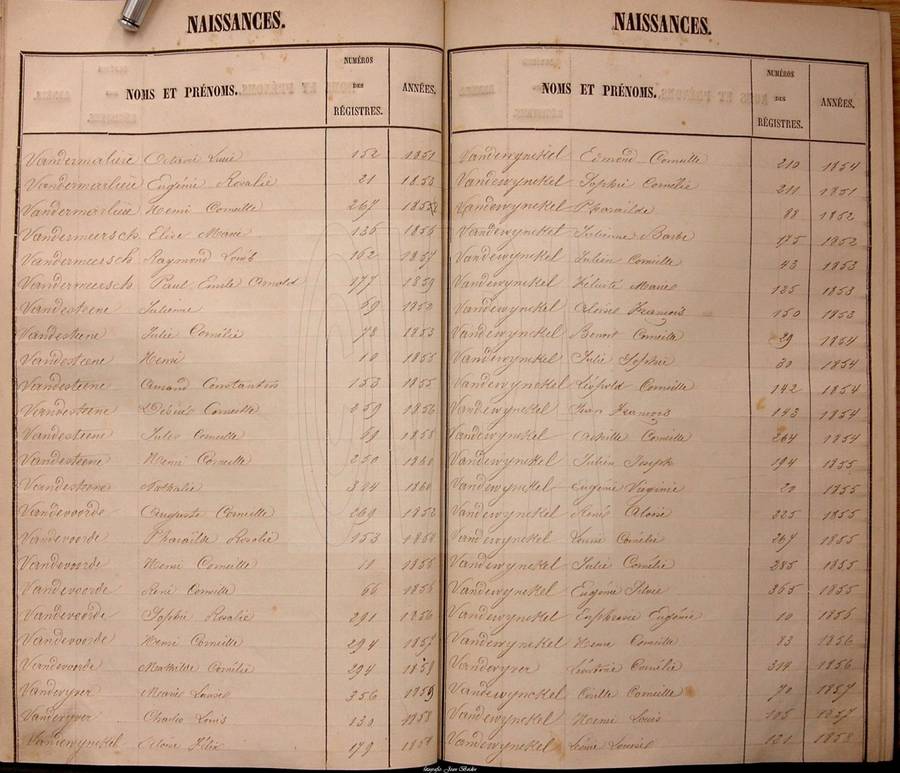 NAISSANCES.
NOMS ET PRÉNOMS. NUMÉROS DES RÉGISTRES. ANNÉES.
Vandermarliere Octavie Lucie 152 1851
Vandermarliere Eugénie Rosalie 21 1853
Vandermarliere Henri Corneille 267
Vandermeersch Elise Marie 136 1855
Vandermeersch Raymond Louis 162 1857
Vandermeersch Paul Emile Arnold 177 1859
Vandesteene Julienne 69
Vandesteene Julie Cornélie 78 1853
Vandesteene Henri 10 1855
Vandesteene Amand Constantin 153 1855
Vandesteene Désiré Corneille 259 1856
Vandesteene Jules Corneille 69 1858
Vandesteene Henri Corneille 250 1860
Vandesteene Nathalie 324 1860
Vandevoorde Auguste Corneille 269 1852
Vandevoorde Pharaïlde Rosalie 153
Vandevoorde Henri Corneille 11
Vandevoorde René Corneille 66
Vandevoorde Sophie Rosalie 291 1856
Vandevoorde Henri Corneille 294 1857
Vandevoorde Mathilde Cornélie 294 1858
Vandevyver Marie Louise 356 1859
Vandevyver Charles Louis 130 1858
Vandewynckel Aloïse Félix 179
NAISSANCES.
NOMS ET PRÉNOMS. NUMÉROS DES RÉGISTRES. ANNÉES.
Vandewynckel Edmond Corneille 210 1854
Vandewynckel Sophie Cornélie 211 1851
Vandewynckel Pharaïlde 88 1852
Vandewynckel Julienne Barbe 175 1852
Vandewynckel Julien Corneille 43 1853
Vandewynckel Félicité Marie 125 1853
Vandewynckel Aloïse François 150 1853
Vandewynckel Benoit Corneille 29 1854
Vandewynckel Julie Sophie 30 1854
Vandewynckel Léopold Corneille 142 1854
Vandewynckel Jean François 143 1854
Vandewynckel Achille Corneille 264 1854
Vandewynckel Julien Joseph 194 1855
Vandewynckel Eugénie Virginie 20 1855
Vandewynckel René Aloïse 225 1855
Vandewynckel Cornélie 267 1855
Vandewynckel Julie Cornélie 285 1855
Vandewynckel Eugénie Silvie 365 1855
Vandewynckel Euphrasie Eugénie 10 1856
Vandewynckel Henri Corneille 83 1856
Vandevyver Léontine Cornélie 314 1856
Vandewynckel Camille Corneille 70 1857
Vandewynckel Henri Louis 105 1857
Vandewynckel Léonie Louise 121 1858